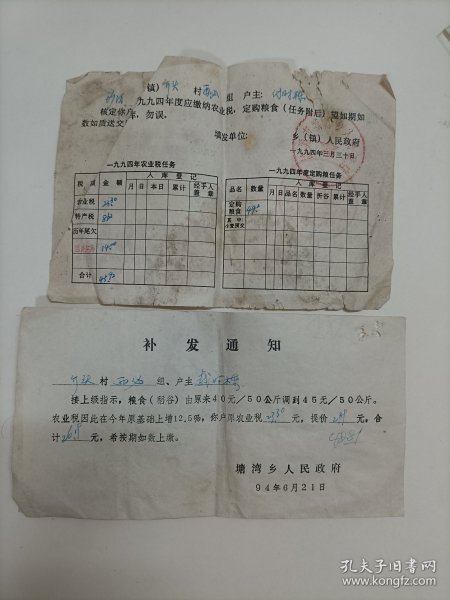 镇) 村 组 户主:
核定你户一九九四年度应缴纳农业税,定购粮食(任务附后)望如期如
数如质送交,勿误。
填发单位: 乡(镇)人民政府
一九九四年三月三十日
一九九四年农业税任务
税质 金额 入库登记
月 日 本日 累计 经手人盖章
农业税
特产税
历年尾欠
合计
一九九四年度定购粮任务
品名 数量 入库登记
月 日 品名 数量 折谷 累计 经手人盖章
定购粮食
其中小麦预交
补发通知
村 组、户主
接上级指示,粮食(稻谷)由原来40元/50公斤调到45元/50公斤。
农业税因此在今年原基础上增12.5%,你户原农业税 元,提价 元,合
计 元,希按期如数上缴。
塘湾乡人民政府
94年6月21日
孔夫子旧书网
www.kongfz.com